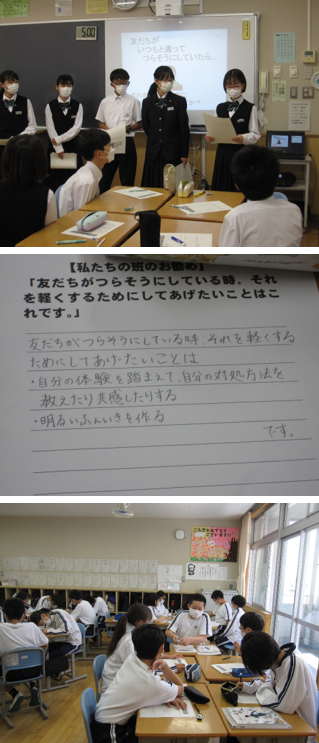 5:00
友だちが
いつもと違って
つらそうにしていたら、
【私たちの班のお勧め】
「友だちがつらそうにしている時、それ
を軽くするためにしてあげたいことはこ
れです。」
友だちがつらそうにしている時、それを軽くする
ためにしてあげたいことは
・自分の体験を踏まえて、自分の対処方法を
教えたり共感したりする
・明るいふんいきを作る
です。